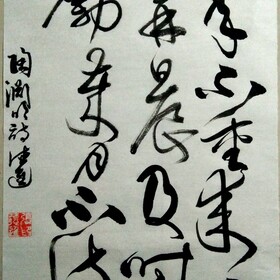 年不重来
再晨及时
励岁月不待
陶渊明诗